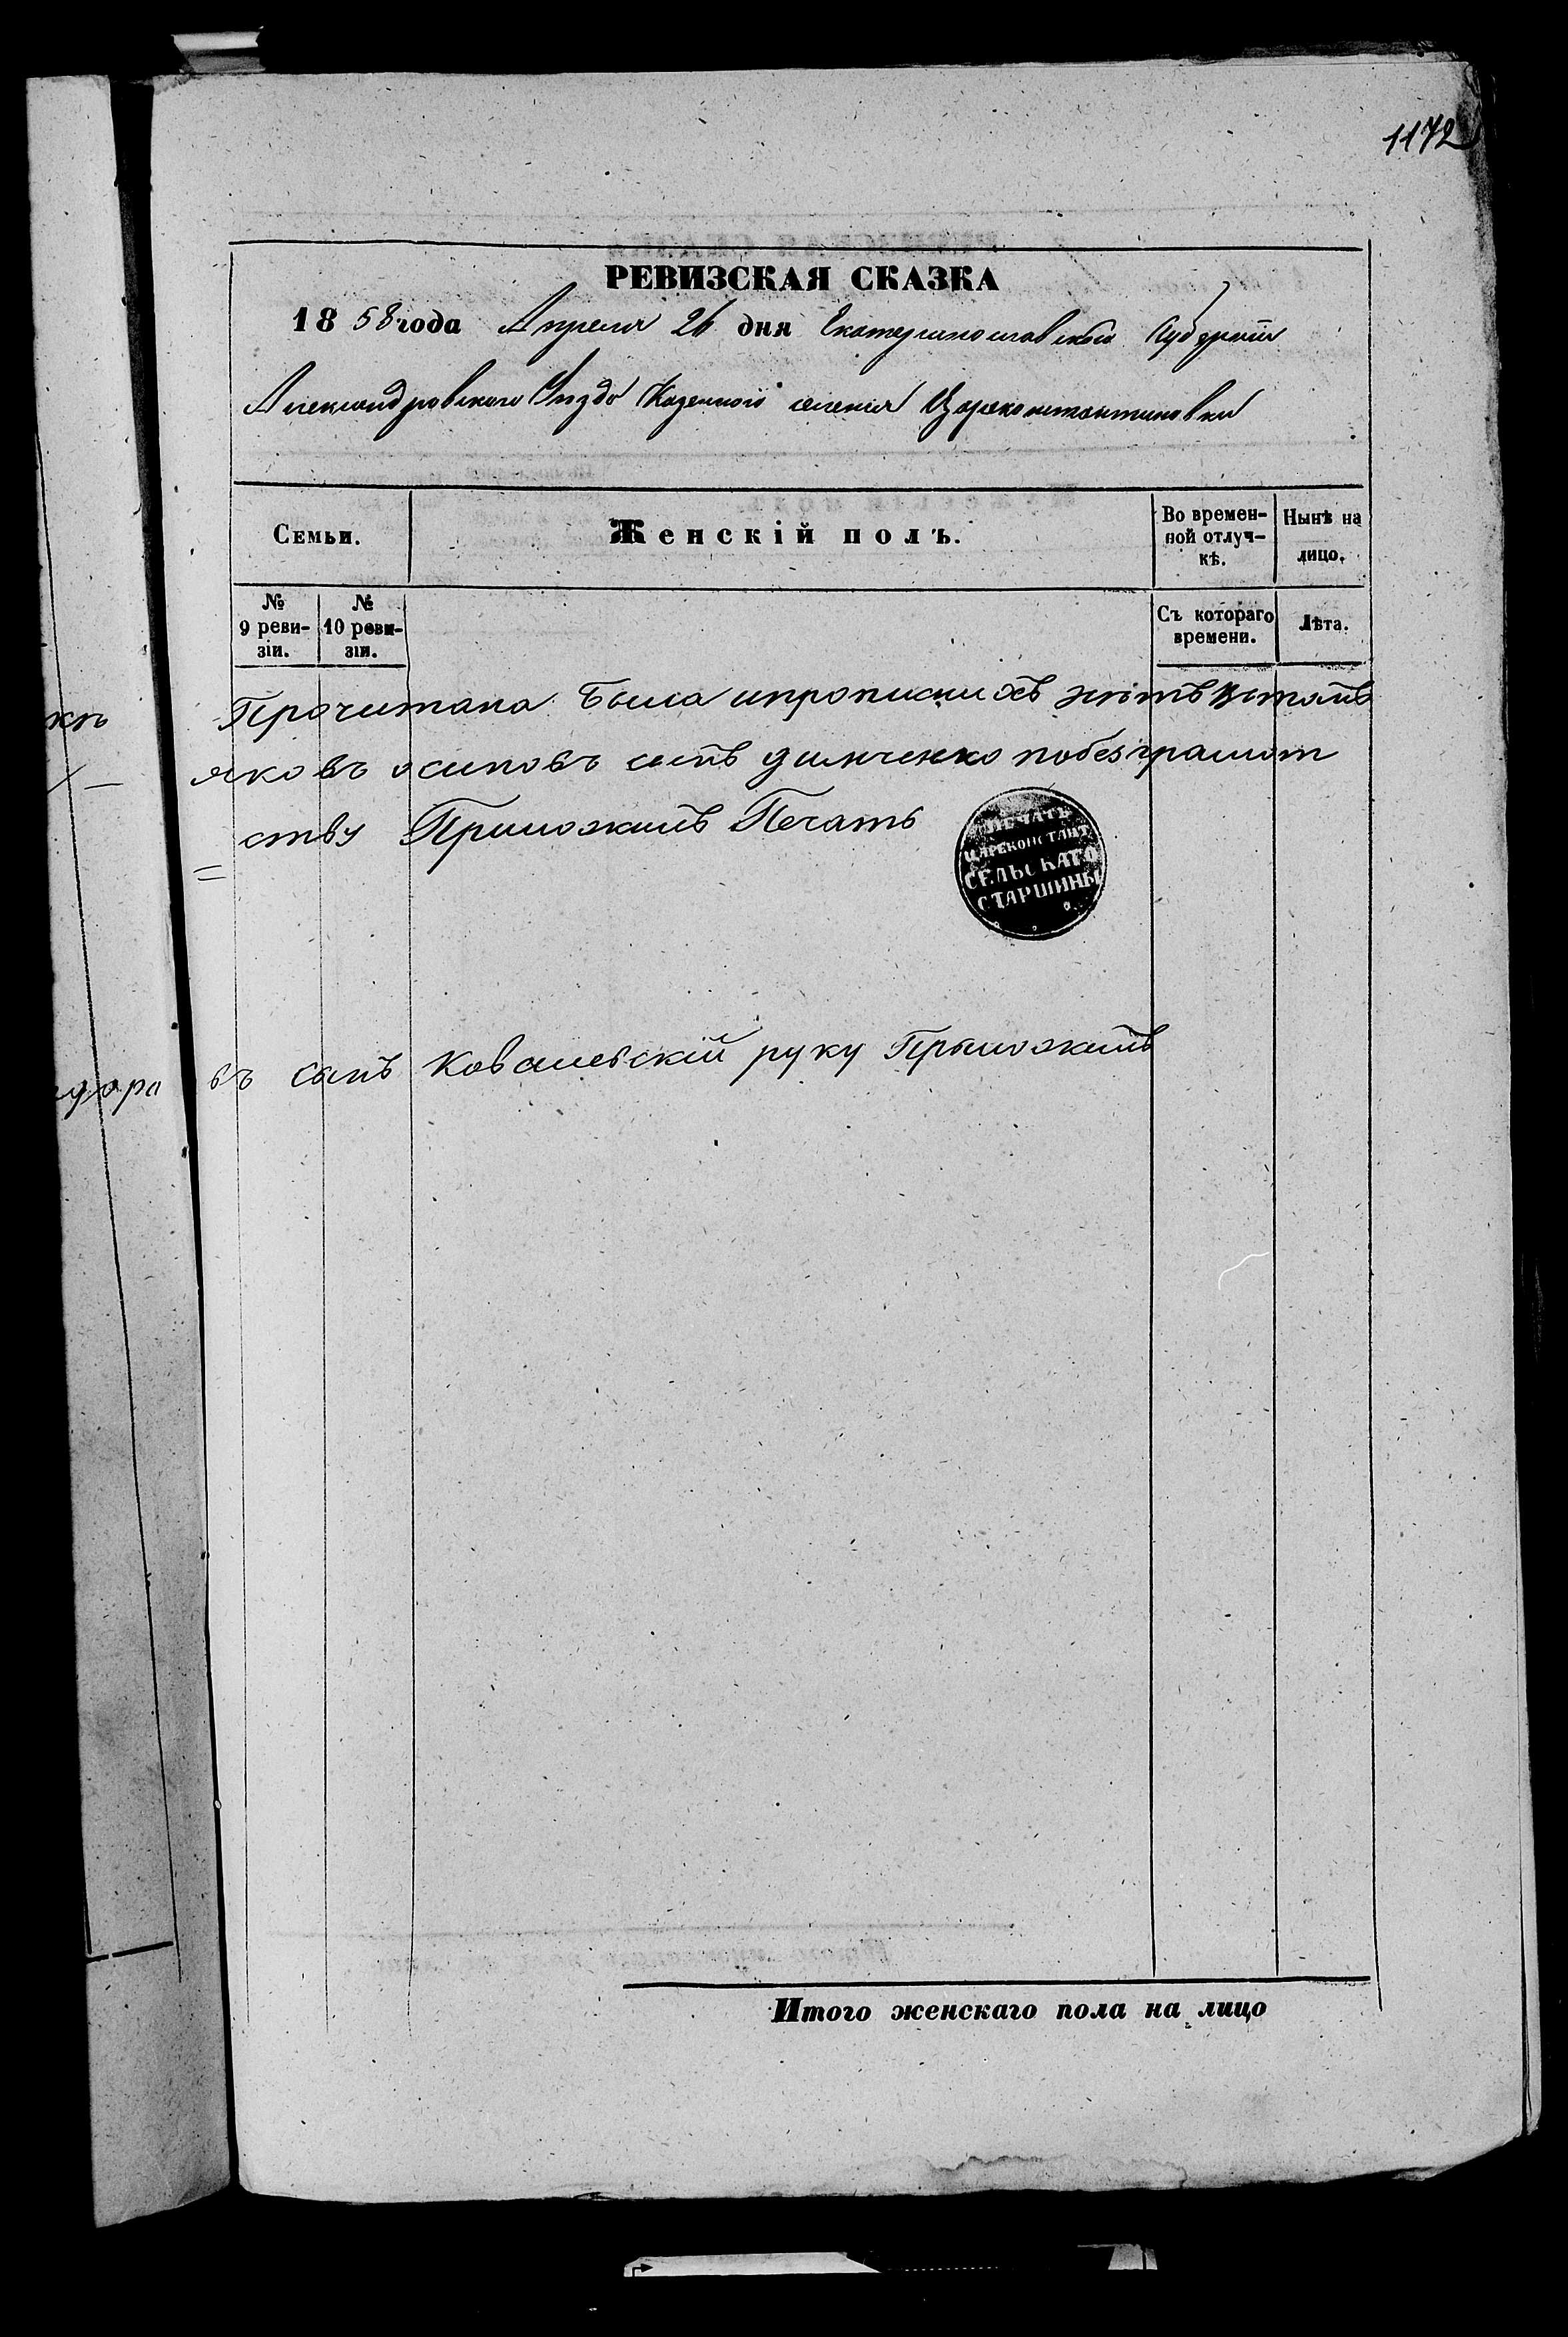 1172
РЕВИЗСКАЯ СКАЗКА
1858 года Апреля 26 дня Екатеринославской Губернии
Александровского Уезда Казенного селения Цареконстантиновки
Семьи.
Женскій полъ.
Во времен-
ной отлуч-
кѣ.
Нынѣ на
лицо.
№
9 реви-
зіи.
№
10 реви-
зіи.
Съ котораго
времени.
Лѣта.
кѣ
Прочитана была ипрописныхъ нѣтъ
яковъ осиповъ сынъ димченко побезграмот
ству Приложилъ Печать
ПЕЧАТЬ
ЦАРЕКОНСТАНТ.
СЕЛЬСКАГО
СТАРШИНЫ
дора въ сынъ Ковалевскій руку Приложилъ
Итого женскаго пола на лицо